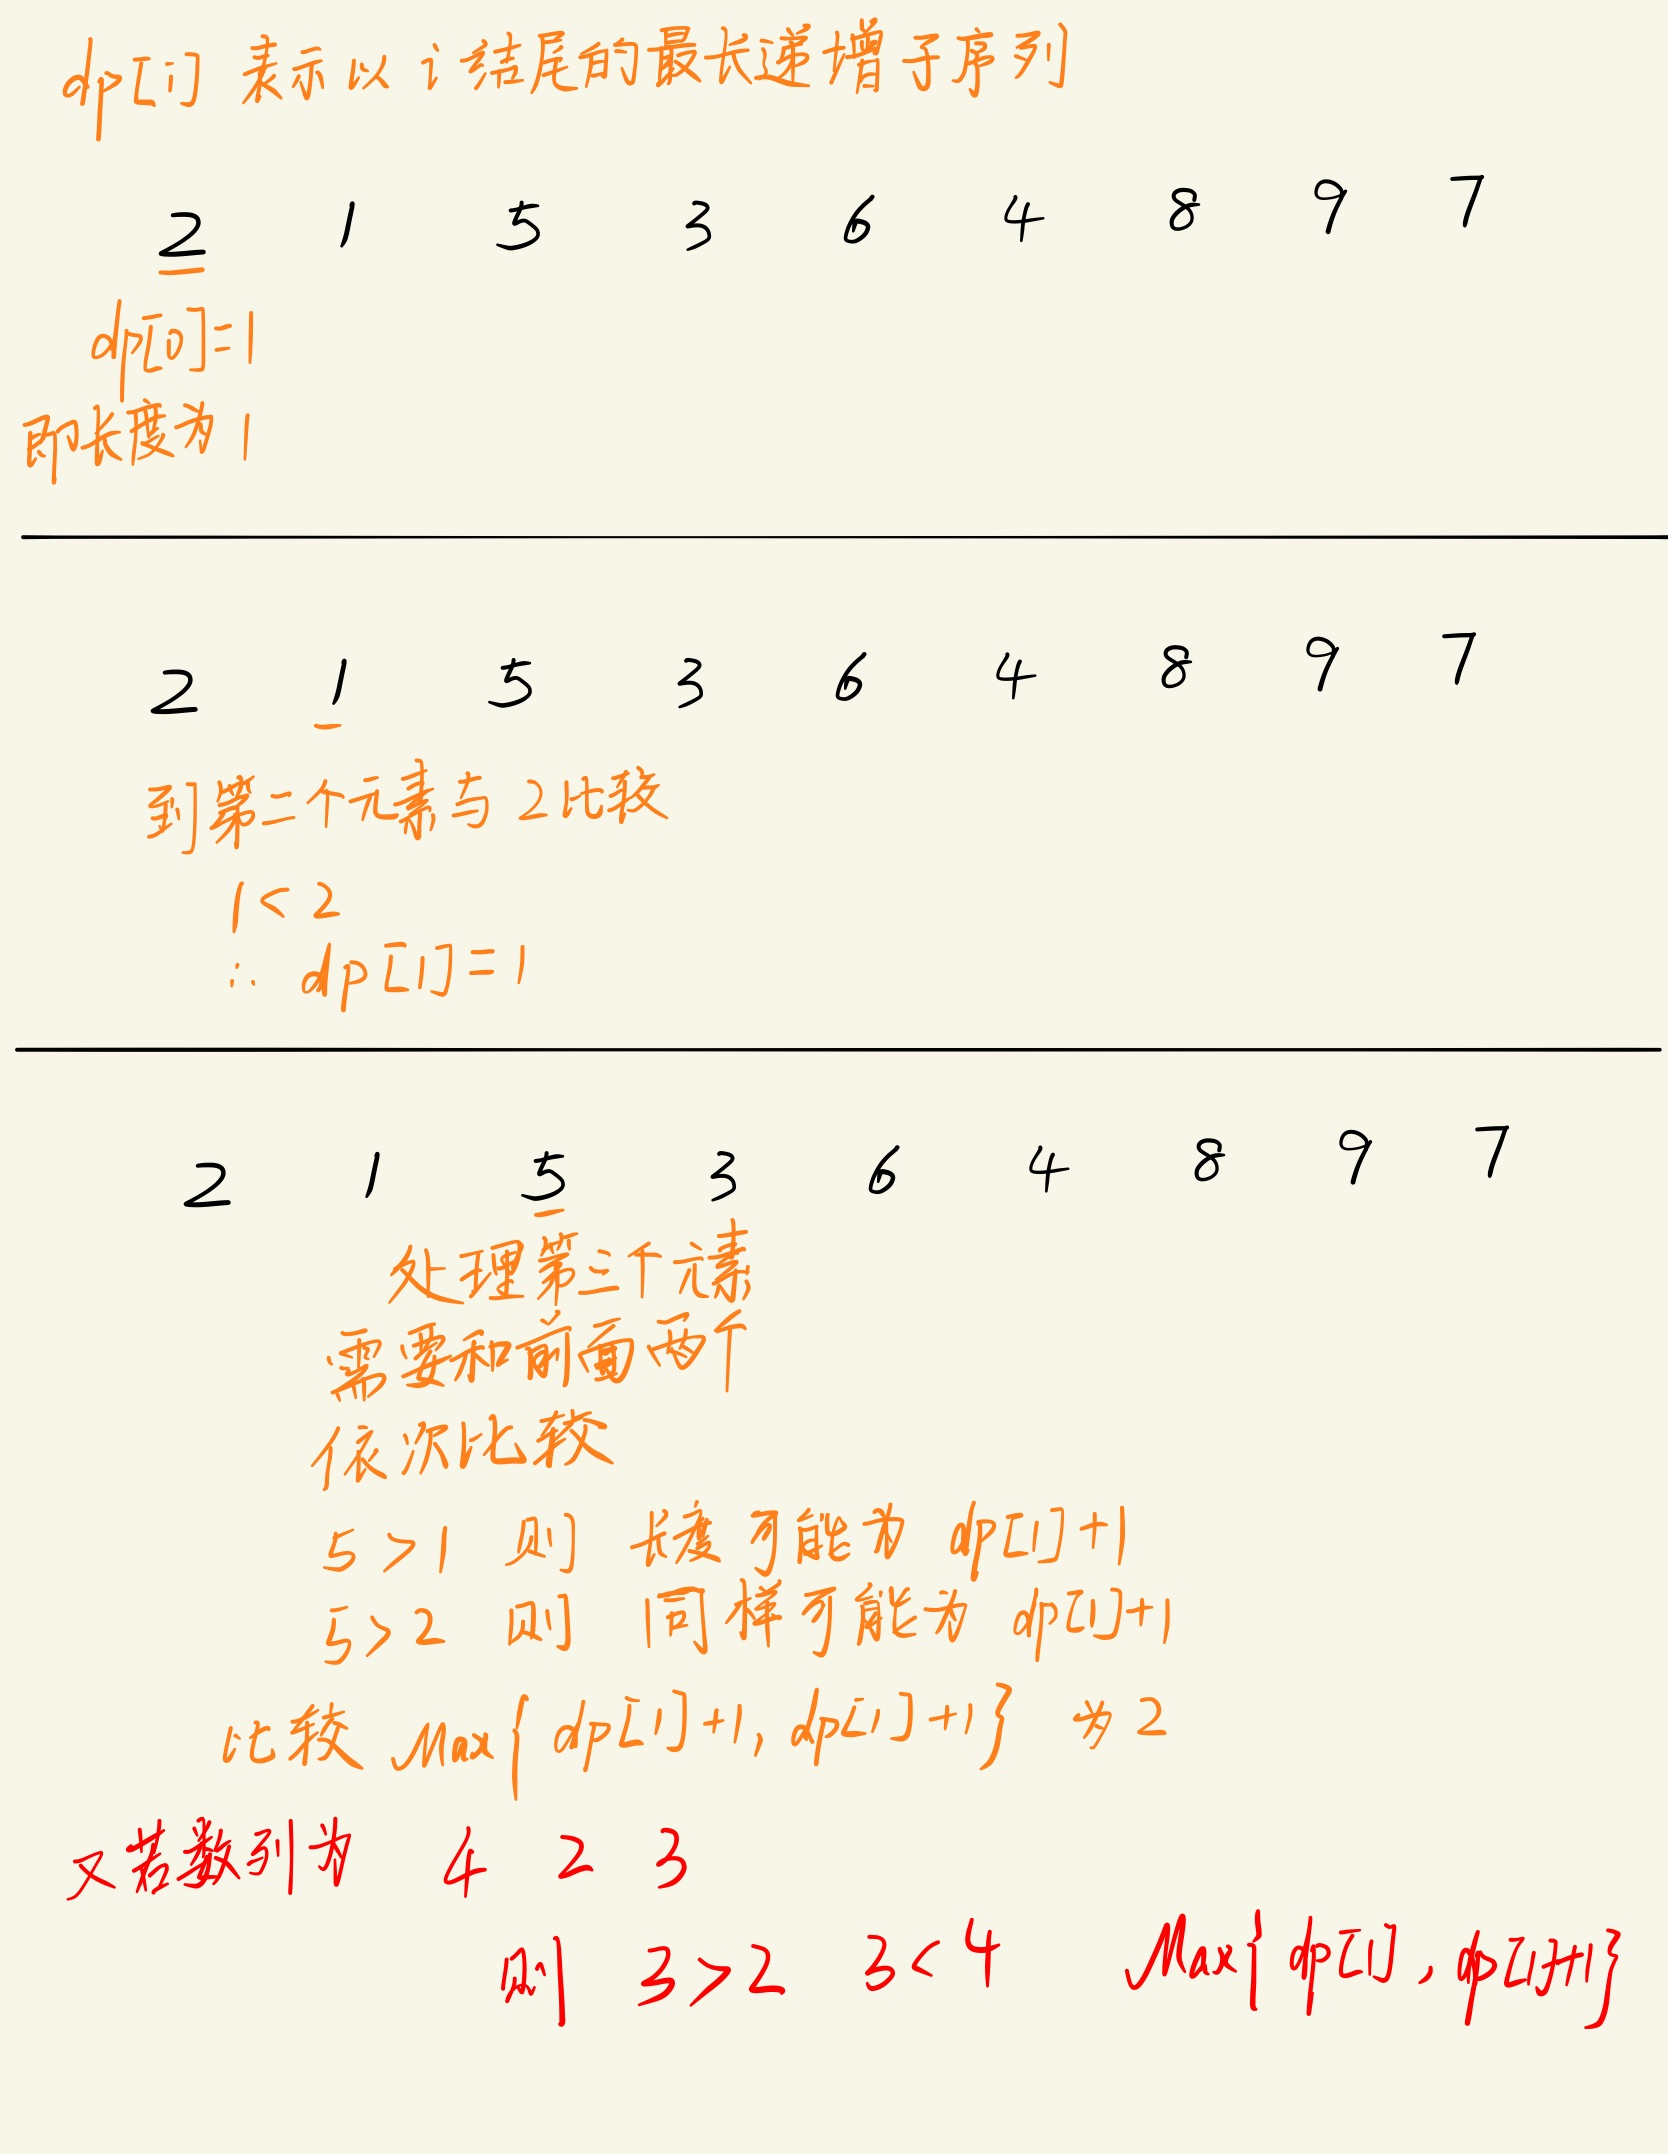 dp[i] 表示以 i 结尾的最长递增子序列
2 1 5 3 6 4 8 9 7
dp[0]=1
即长度为1
2 1 5 3 6 4 8 9 7
到第二个元素与2比较
1<2
∴ dp[1]=1
2 1 5 3 6 4 8 9 7
处理第三个元素
需要和前面两个
依次比较
5>1 则 长度可能为 dp[1]+1
5>2 则 同样可能为 dp[1]+1
比较 Max{ dp[1]+1, dp[1]+1} 为2
又若数列为 4 2 3
则 3>2 3<4 Max{ dp[1], dp[1]+1}